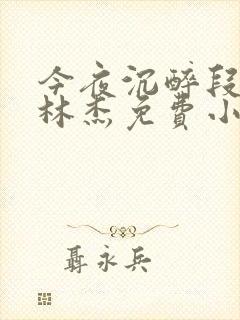 今夜沉醉段
林杰免费小
聂永兵